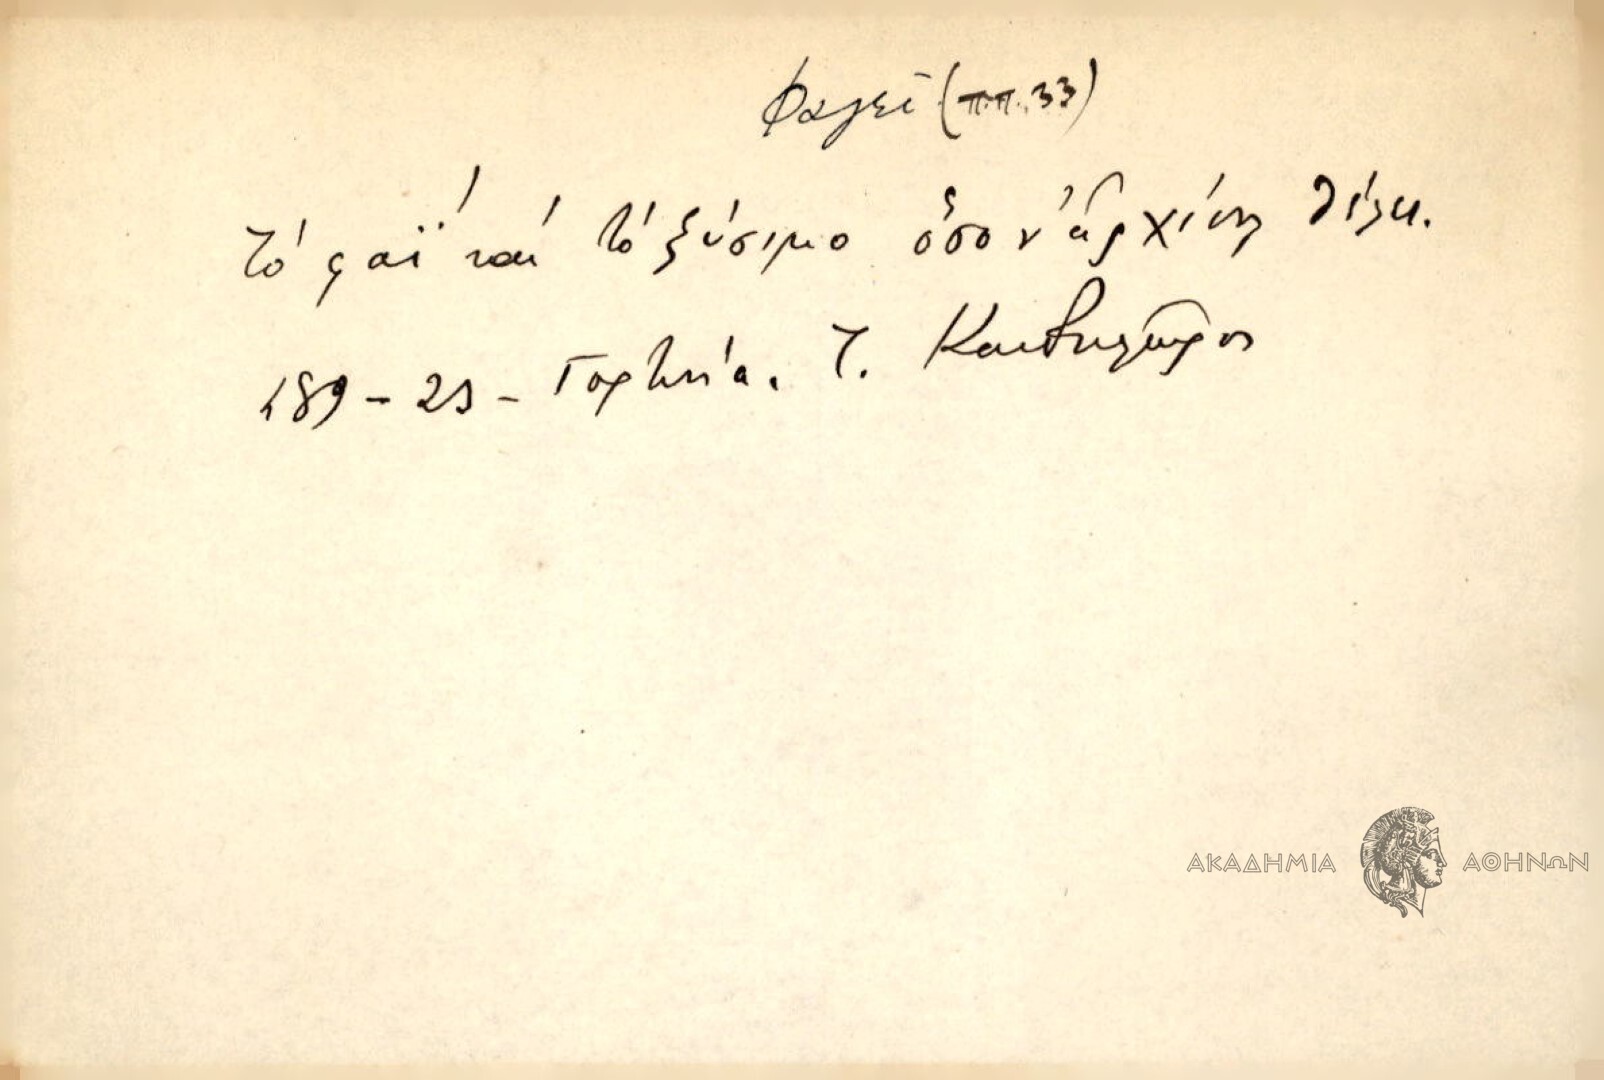 Φαγεῖ (π.π. 33)
Τό φαΐ καί τό ξύσιμο ὅσο ν' ἀρχίση θέλει.
189 - 23 - Γορτυνία. Τ. Κανδηλῶρος
ΑΚΑΔΗΜΙΑ ΑΘΗΝΩΝ